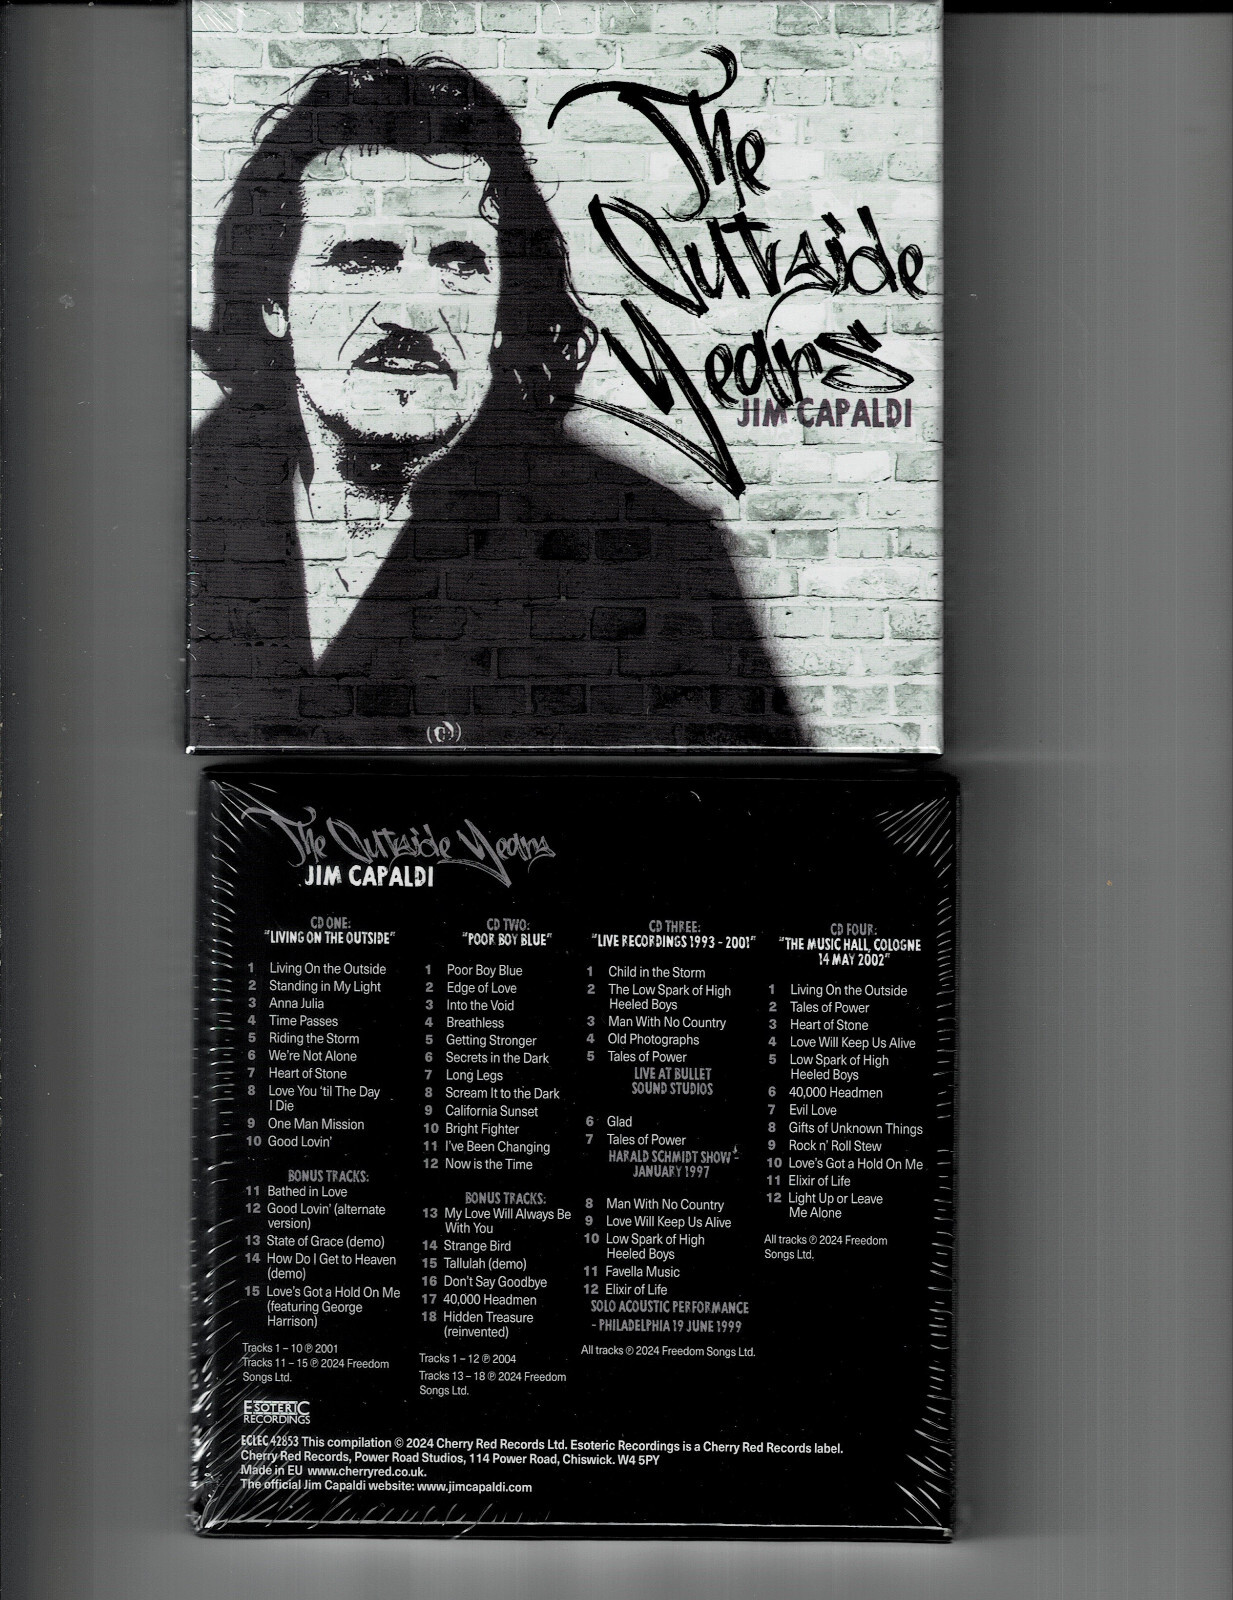 The
Outside
Years
JIM CAPALDI
The Outside Years
JIM CAPALDI
CD ONE:
"LIVING ON THE OUTSIDE"
1 Living On the Outside
2 Standing in My Light
3 Anna Julia
4 Time Passes
5 Riding the Storm
6 We're Not Alone
7 Heart of Stone
8 Love You 'til The Day
I Die
9 One Man Mission
10 Good Lovin'
BONUS TRACKS:
11 Bathed in Love
12 Good Lovin' (alternate
version)
13 State of Grace (demo)
14 How Do I Get to Heaven
(demo)
15 Love's Got a Hold On Me
(featuring George
Harrison)
Tracks 1 – 10 ℗ 2001
Tracks 11 – 15 ℗ 2024 Freedom
Songs Ltd.
CD TWO:
"POOR BOY BLUE"
1 Poor Boy Blue
2 Edge of Love
3 Into the Void
4 Breathless
5 Getting Stronger
6 Secrets in the Dark
7 Long Legs
8 Scream It to the Dark
9 California Sunset
10 Bright Fighter
11 I've Been Changing
12 Now is the Time
BONUS TRACKS:
13 My Love Will Always Be
With You
14 Strange Bird
15 Tallulah (demo)
16 Don't Say Goodbye
17 40,000 Headmen
18 Hidden Treasure
(reinvented)
Tracks 1 – 12 ℗ 2004
Tracks 13 – 18 ℗ 2024 Freedom
Songs Ltd.
CD THREE:
"LIVE RECORDINGS 1993 - 2001"
1 Child in the Storm
2 The Low Spark of High
Heeled Boys
3 Man With No Country
4 Old Photographs
5 Tales of Power
LIVE AT BULLET
SOUND STUDIOS
6 Glad
7 Tales of Power
HARALD SCHMIDT SHOW -
JANUARY 1997
8 Man With No Country
9 Love Will Keep Us Alive
10 Low Spark of High
Heeled Boys
11 Favella Music
12 Elixir of Life
SOLO ACOUSTIC PERFORMANCE
- PHILADELPHIA 19 JUNE 1999
All tracks ℗ 2024 Freedom Songs Ltd.
CD FOUR:
"THE MUSIC HALL, COLOGNE
14 MAY 2002"
1 Living On the Outside
2 Tales of Power
3 Heart of Stone
4 Love Will Keep Us Alive
5 Low Spark of High
Heeled Boys
6 40,000 Headmen
7 Evil Love
8 Gifts of Unknown Things
9 Rock n' Roll Stew
10 Love's Got a Hold On Me
11 Elixir of Life
12 Light Up or Leave
Me Alone
All tracks ℗ 2024 Freedom
Songs Ltd.
ESOTERIC
RECORDINGS
ECLEC 42853 This compilation © 2024 Cherry Red Records Ltd. Esoteric Recordings is a Cherry Red Records label.
Cherry Red Records, Power Road Studios, 114 Power Road, Chiswick. W4 5PY
Made in EU www.cherryred.co.uk.
The official Jim Capaldi website: www.jimcapaldi.com